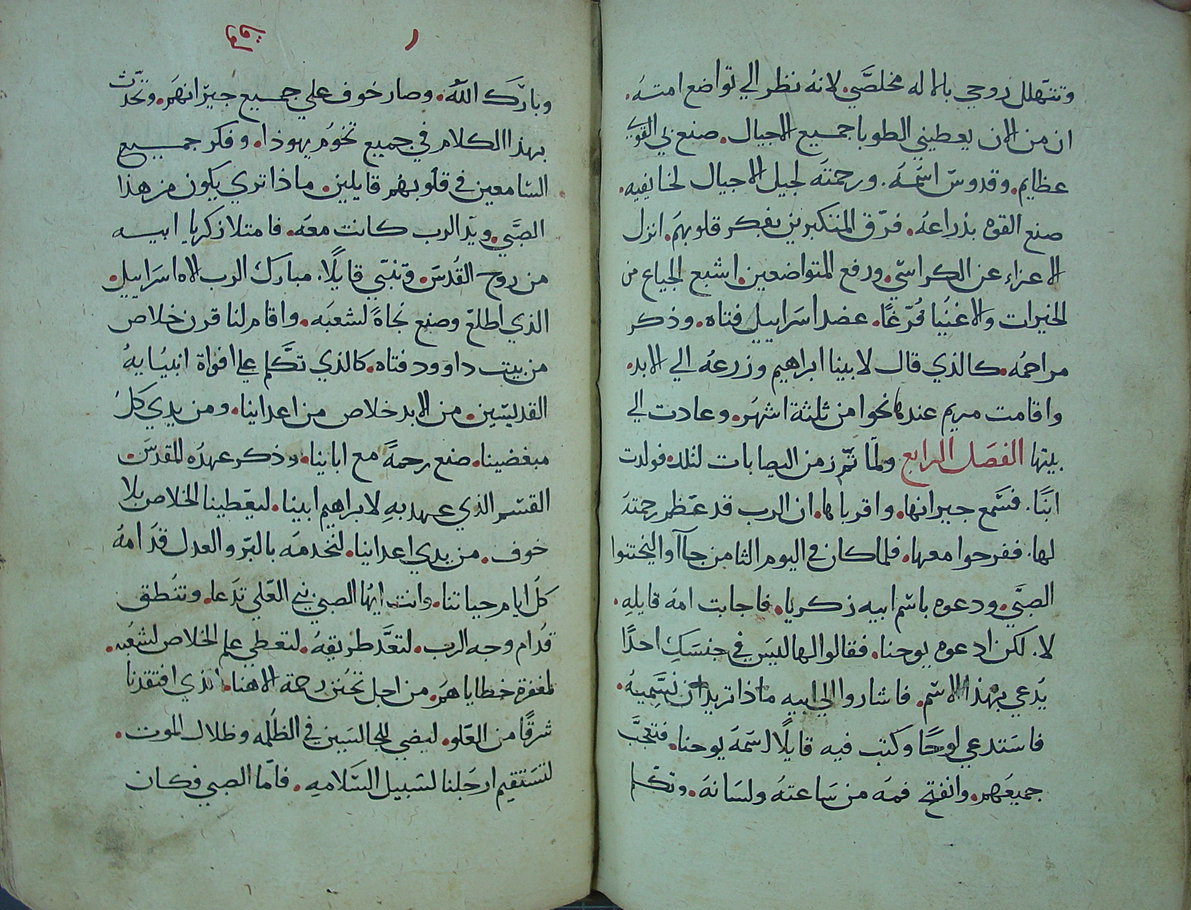 وتتهلل روحي بالله مخلصَّي. لانهُ نظر الي تواضع امتهُ.
ان من الان يعطيني الطوبا جميع الاجيال. صنع بي القوي
عظايم. وقدوسٌ اسمُهُ. ورحمتهُ لجيل الاجيال لخايفيه.
صنع القوه بذراعهُ. فرّق المتكبرين بفكر قلوبهمَ. انزل
الاعزاء عن الكراسّي. ورفع المتواضعين. اشبع الجياع من
الخيرات والاغنيا فُرّغًا. عضد اسراييل فتاه. وذكر
مراحمُه. كالذي قال لابينا ابراهيم وزرعهُ الي الابد.
واقامت مريم عندها نحوا من ثلثة اشهَر. وعادت الي
بيتها الفصَل الرابع ولمّا تمّ زمن اليصابات لتلد. فولدت
ابنًا. فسَمع جيرانها. واقرباها. ان الرب قد عَظم رحمتهَ
لها. ففرحوا معها. فلما كان في اليوم الثامن جاآوا ليختنوا
الصبَّي. ودعوه باسم ابيه زكريا. فاجابت امهُ قايله.
لا. لكن ادعوه يوحنا. فقالوا لها ليسَ في جنسَكِ احدًا
يُدعي بهذا الاسَم. فاشاروا الي ابيه ماذا تريد ان نُسَميهُ.
فاسَتدعي لوحًا وكتب فيه قايلًا اسَمهَ يوحنا. فتعجَّب
جميعَهم. وانفتح فمهَ من سَاعتهُ ولسَانهَ. وتكلم
لوقا
وباركَ اللهُ. وصار خوف علي جميع جيرَانهمَ. وتحدّث
بهذا الكلام في جميع تخوم يهوذا. وفكر جميع
السَامعين في قلوبهُم قايلين. ماذا تري يكون من هذا
الصبَّي. ويد الرب كانت معهَ. فامتلا زكريا ابيه
من روح القُدسَ. وتنبّي قايلًا. مبارك الرب الاه اسراييل.
الذي اطلع وصنع نجاةً لشعبَه. واقام لنا قرن خلاص
من بيت داوود فتاه. كالذي تكّلم علي افواة انبيُايهُ
القديسَين. من الابد خلاص من اعداينا. ومن يدي كلُ
مبغضينا. صنع رحمةً مع اباينا. وذكر عهدُه المقدسَ
القسَم الذي عهد به لابراهيم ابينا. ليعَطينا الخلاص بلا
خوف. من يدي اعداينا. لنخدمهَ بالبرّ والعدل قدامهُ
كل ايام حياتنا. وانت ايُها الصبي نبي العَلي تدَعا. وتنُطلق
قدُام وجه الرب. لتعَّد طريقهُ. لتعَطي علم الخلاص لشعبُه.
لمغفرة خطاياهمَ. من اجل تحُنن رحمة الاهنا. الذي افتقدنا
شرقًا من العَلو. ليضي للجالسَين في الظُلمه وظلال الموت.
لتسَتقيم ارجَلنا لسَبيل السَلامه. فامّا الصبي فكان